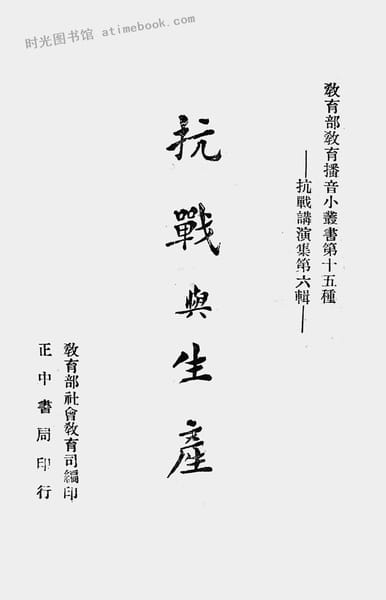 时光图书馆 atimebook.com
教育部教育播音小叢書第十五種
——抗戰講演集第六輯——
抗戰與生產
教育部社會教育司編印
正中書局印行